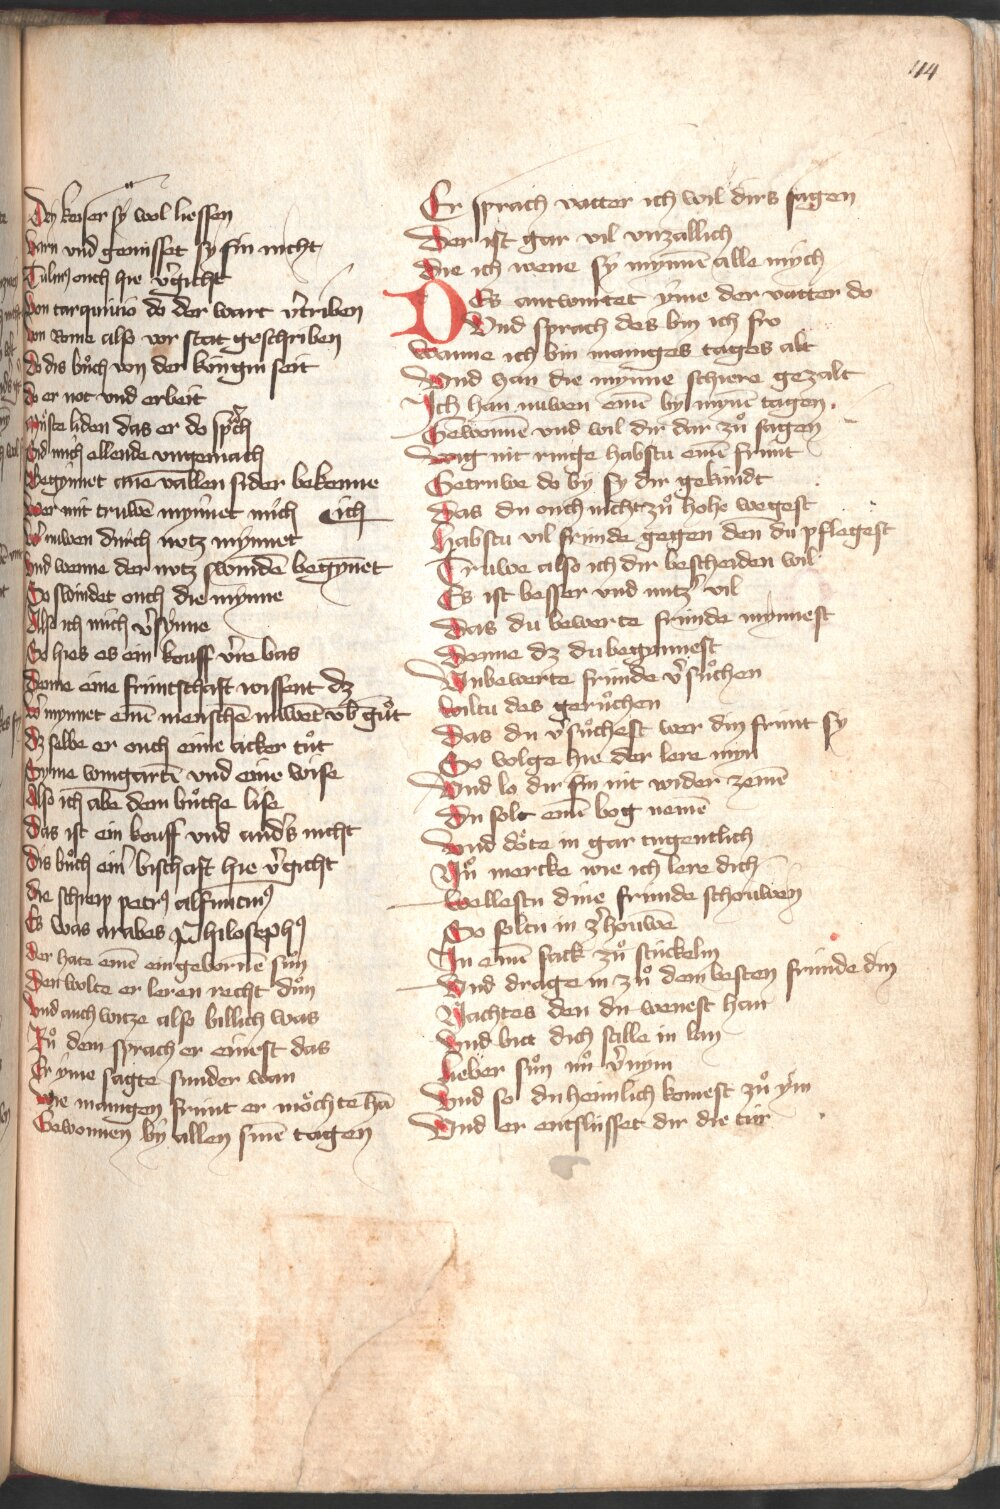 114
Den keiser sy wol liessen
Varn vnd genisset sy sin nicht
Tulius ouch hie v̾gicht
Von tarquinio do der wart v̾triben
Von Rome also vor stat geschriben
Do dis bůch von den kungin seit
Do er not vnd erbeit
Můste liden das er do sp̾ch
Sid mich ellende vngemach
Begynnet ane vallen sider bekenne
Wer mit truwē mynnet mich ich
Wer nuwen durch nutz mynnet
Vnd wenne der nutz swindē begynnet
So swindet ouch die mynne
Also ich mich v̾synne
So hies es ein kouff v̾re bas
Denne eine fruntschaft wissent dz
Wer mynnet einē menschē nuwēt vb gůt
Dz selbe er ouch eime acker tůt
Syme wingartē vnd eine wise
Also ich abe dem bůche lise
Das ist ein kouff vnd anders nicht
Dis bůch ein bischaft hie v̾gicht
Die schreip petrus alfuncius
Es was arabes philosephus
Der hate einē eingebornē sůn
Den wolte er leren recht důn
Vnd auch witze also billich was
Zů dem sprach er einest das
Er yme sagte sunder wan
Wie manigen frunt er mőchte hā
Gewonnen by allen sinē tagen
Er sprach vatter ich wil dirs sagen
Der ist gar vil vnzallich
Die ich wene sy mynnē alle mych
Des antwurtet yme der vatter do
Vnd sprach des bin ich fro
Wanne ich bin maniges tages alt
Vnd han die mynne schiere gezalt
Ich han nuwen einē by mynē tagen
Gewonnē vnd wil dir dar zů sagen
Wig nit ringe habstu einē frunt
Getruwe do by sy dir gekundt
Das du ouch nicht zů hohe wegest
Habstu vil frunde gegen den du pflegest
Truwe also ich dir bescheiden wil
Es ist besser vnd nutz̾ vil
Das du bewerte frunde mynnest
Denne dz du begynnest
Vnbewerte frunde v̾sůchen
Wiltu des gerůchen
Das du v̾sůchest wer din frunt sy
So volge hie der lere myn
Vnd lo dir sin nit wider zemē
Du solt einē bog nemē
Vnd dőte in gar tugentlich
Nů mercke wie ich lere dich
Wellestu dine frunde schouwen
So soltu in z̾houwē
In einē sack zů stuckelin
Vnd drage in zů dem besten frunde din
Nachtes den du wenest han
Vnd bit dich stille in lan
Lieber sůn nů v̾nym
Vnd so du heimlich komest zů ym
Vnd er entslusset dir die tur